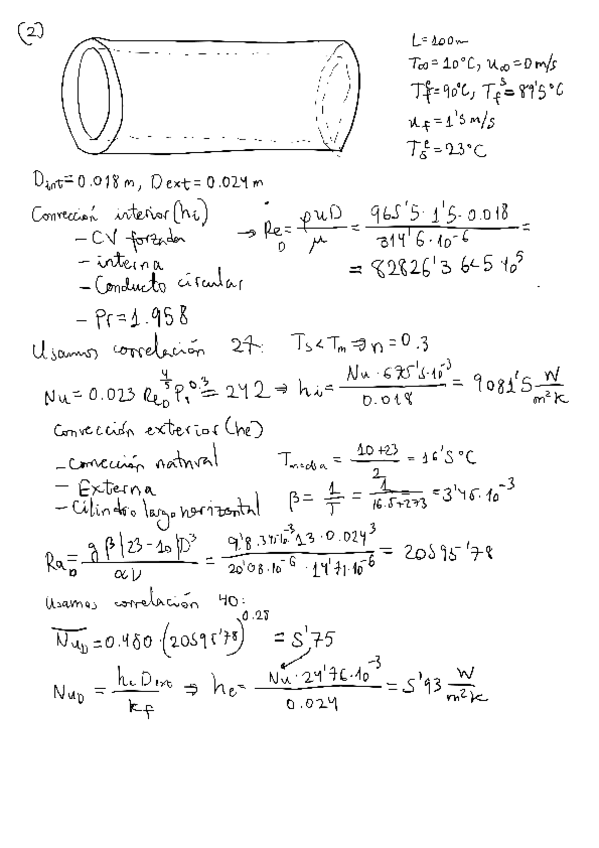 (2)
L=100m
T∞=10°C, u∞=0m/s
Tfᵉ=90°C, Tfˢ=89'5°C
uf=1'5 m/s
Tsᵉ=23°C
Dint=0.018 m, Dext=0.024 m
Convección interior (hi)
- CV forzada
- interna
- Conducto circular
- Pr=1.958
→ Re_D = ρuD/μ = 965'5·1'5·0.018 / 314'6·10⁻⁶ =
= 82826'3 6<5·10⁵
Usamos correlación 27: Ts<Tm ⇒ n=0.3
Nu=0.023 Re_D^(4/5) Pr^0.3 = 242 ⇒ hi = Nu·675'5·10⁻³ / 0.018 = 9081'5 W/m²K
Convección exterior (he)
- Convección natural
- Externa
- Cilindro largo horizontal
Tmedia = 10+23 / 2 = 16'5°C
β = 1/T = 1 / 16.5+273 = 3'45·10⁻³
Ra_D = gβ|23-10|D³ / αν = 9'8·3'45·10⁻³·13·0.024³ / 20'08·10⁻⁶·14'71·10⁻⁶ = 20595'78
Usamos correlación 40:
Nu_D = 0.480·(20595'78)^0.25 = 5'75
Nu_D = he Dext / kf ⇒ he = Nu·24'76·10⁻³ / 0.024 = 5'93 W/m²K